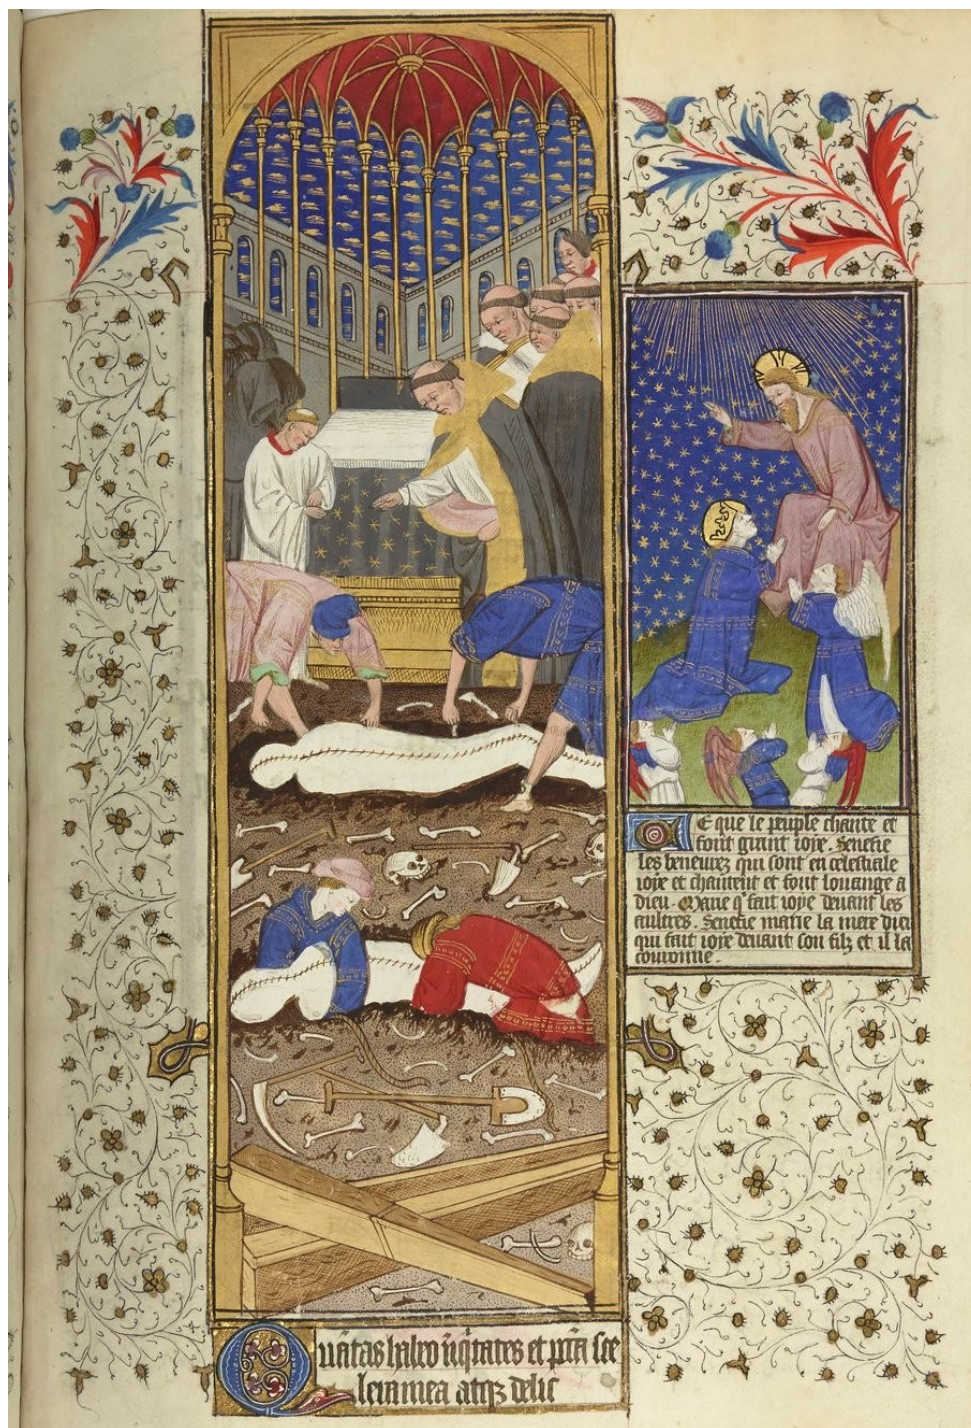 Ce que le peuple chante et
font grant ioye. Senefie
les beneurez qui sont en celestiale
ioye et chantent et font louange a
dieu. Marie q̄ fait ioye deuant les
aultres. Senefie marie la mere dieu
qui fait ioye deuant son filz et il la
couronne.
Quātas habeo iniq̄tates et pctā sce
lera mea atqꝫ delic